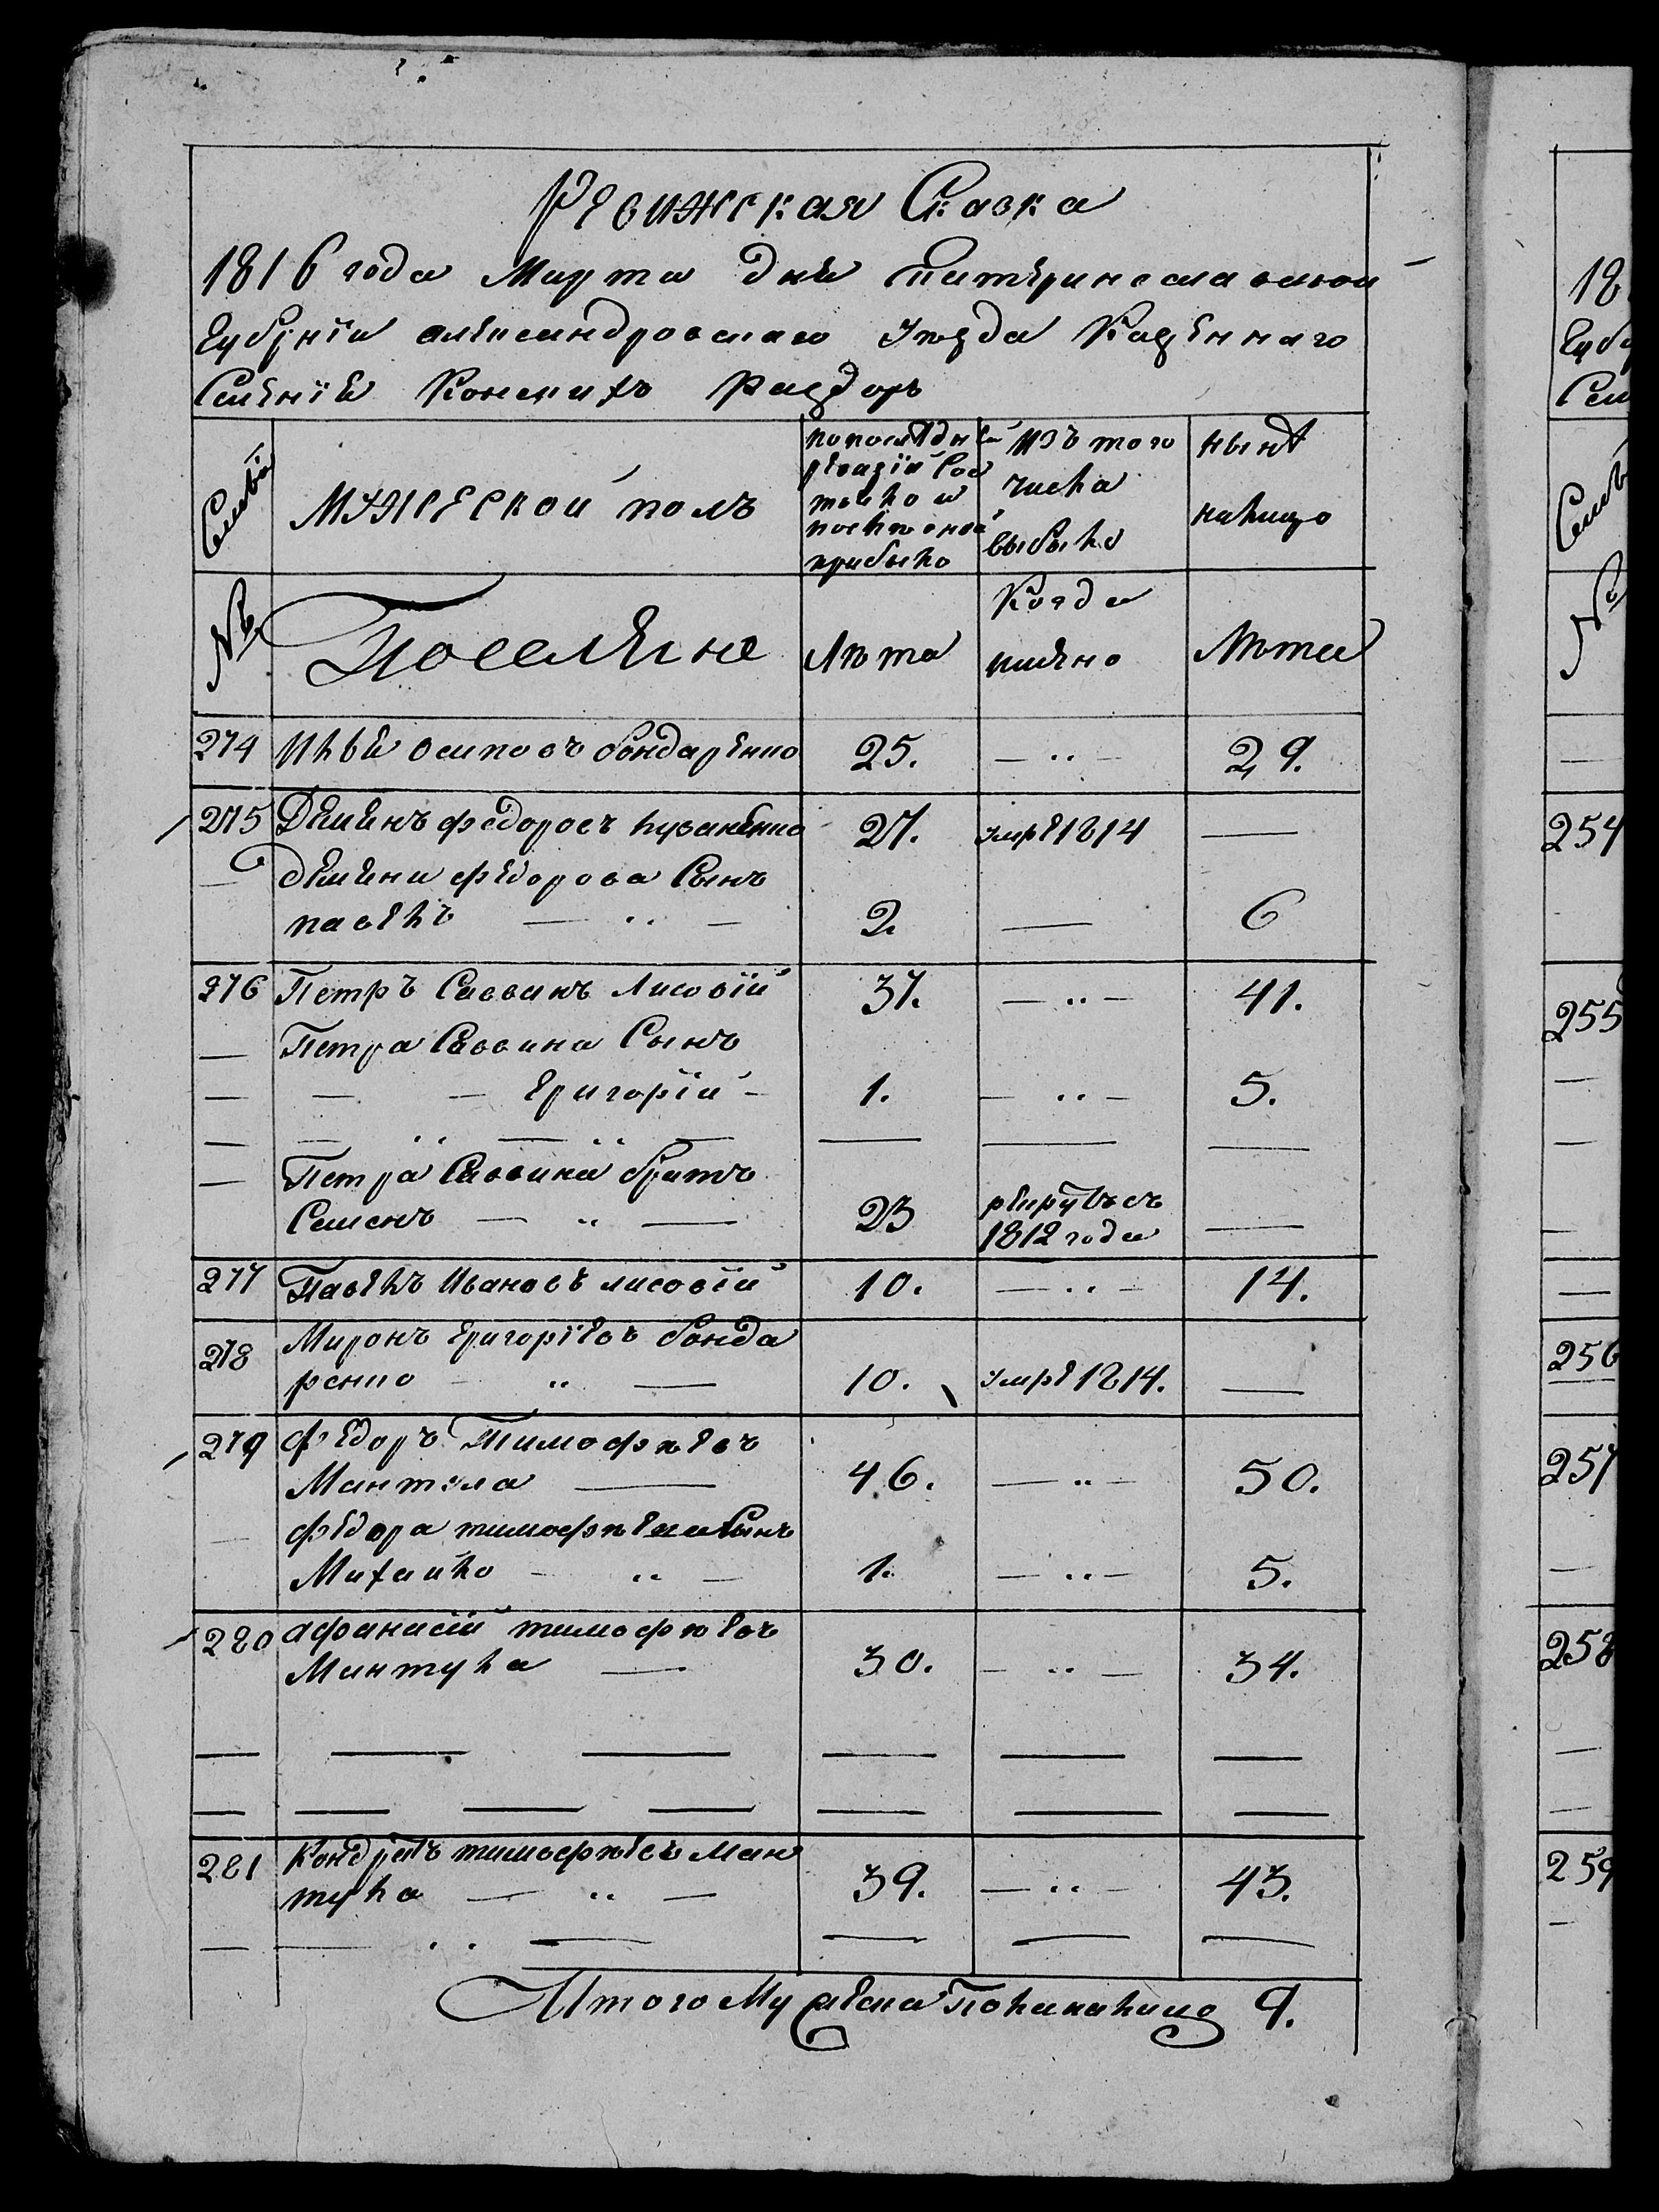 Ревижская Сказка
1816 года Марта дня Екатеринославской
Губернїи Александровскаго Уезда Казеннаго
Селенїя Конскихъ Раздоръ
Семьи
Мужеской полъ
по последней
ревизїи Сос
тояло и
после оной
прибыло
изъ того
числа
выбыло
ныне
налицо
№
Поселяне
Лѣта
Когда
имено
Лѣта
274 Илья Осиповъ бондаренко 25. 29.
275 Деминъ Федоровъ 27. умре 1814
Демина Федорова Сынъ
павелъ 2. 6
276 Петръ Саввинъ Лисовїй 37. 41.
Петра Саввина Сынъ
Григорїй 1. 5.
Петра Саввина братъ
Семенъ 23 рекрутъ съ
1812 года
277 Павелъ Ивановъ лисовїй 10. 14.
278 Миронъ Григорїевъ бонда
ренко 10. умре 1814.
279 Федоръ Тимофѣевъ
Мантула 46. 50.
Федора тимофѣева Сынъ
Михайло 1. 5.
280 афанасїй тимофѣевъ
Мантула 30. 34.
281 Кондратъ тимофѣевъ Ман
тула 39. 43.
Итого Мужеска Пола налицо 9.
18
Губе
Сел
Семь
№
254
255
256
257
258
259